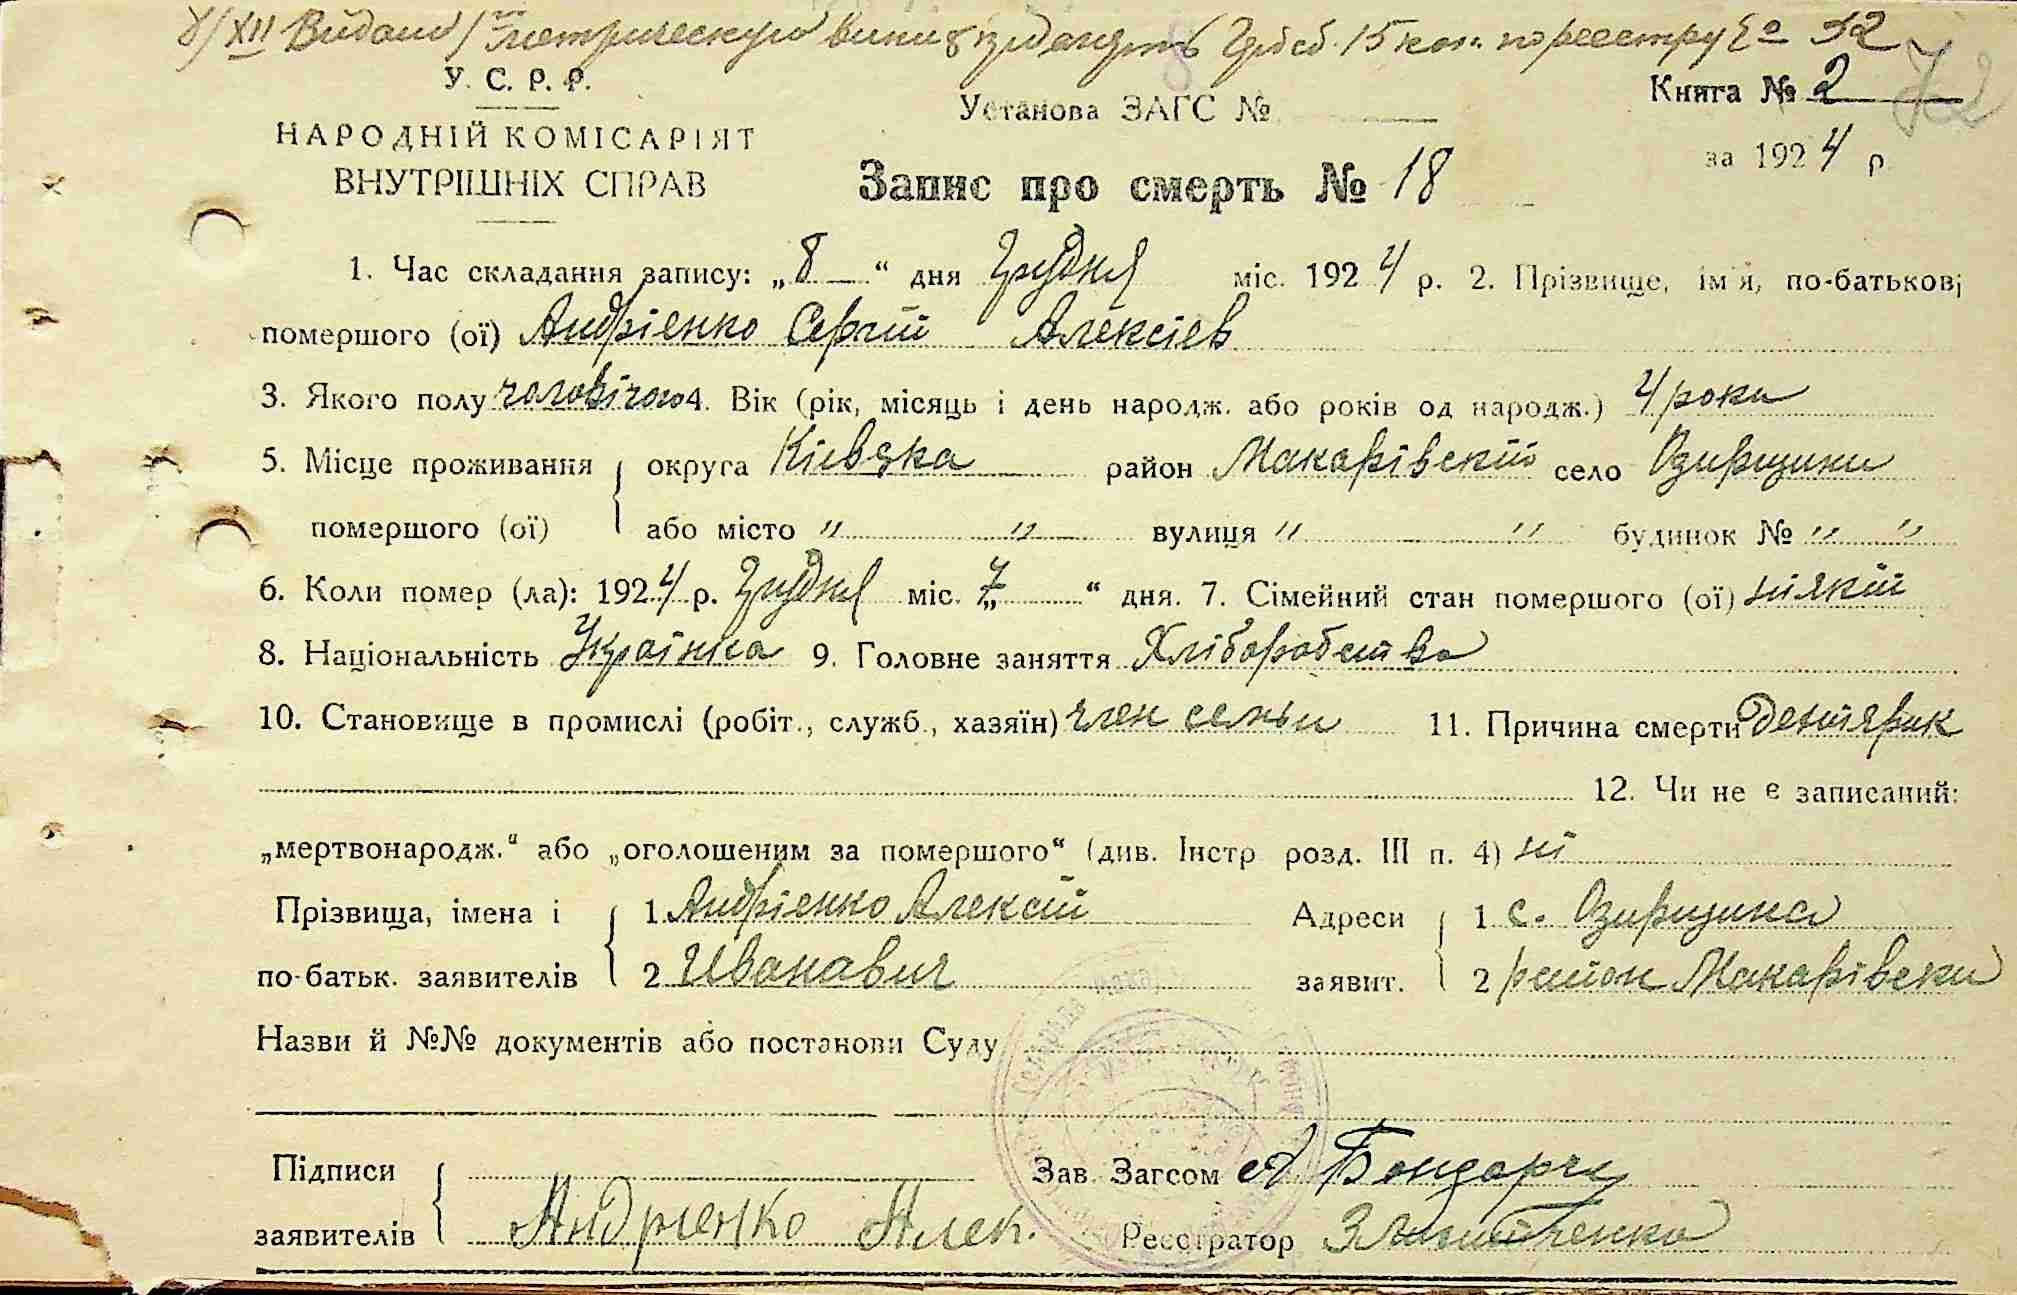 8/XII Видано метрическую випись 15 коп. по реестру № 32
72
У. С. Р. Р.
НАРОДНІЙ КОМІСАРІЯТ
ВНУТРІШНІХ СПРАВ
Установа ЗАГС №
Книга № 2
за 1924 р.
Запис про смерть № 18
1. Час складання запису: „8“ дня Грудня міс. 1924 р. 2. Прізвище, ім'я, по-батькові
помершого (ої) Андрієнко Сергій Алексіев
3. Якого полу чоловічого 4. Вік (рік, місяць і день народж. або років од народж.) 4 роки
5. Місце проживання округа Кієвска район Макарівский село Озирщини
помершого (ої) або місто " " вулиця " " будинок № " "
6. Коли помер (ла): 1924 р. Грудня міс. „7“ дня. 7. Сімейний стан помершого (ої) ніякій
8. Національність Українка 9. Головне заняття Хліборобства
10. Становище в промислі (робіт., служб., хазяїн) член семьи 11. Причина смерти
12. Чи не є записаний:
„мертвонародж.“ або „оголошеним за помершого“ (див. Інстр розд. III п. 4) ні
Прізвища, імена і 1. Андрієнко Алексій Адреси 1 с. Озирщина
по-батьк. заявителів 2 Иванавич заявит. 2 район Макарівски
Назви й №№ документів або постанови Суду
Підписи Зав. Загсом А Бондарчу
заявителів Андриенко Алек. Реєстратор